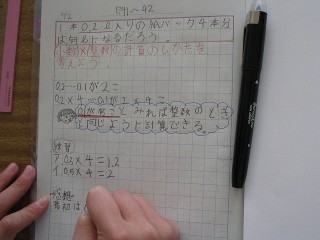 P41〜42
1本0.2L入りの紙パック4本分
は何Lになるだろう。
小数×整数の計算のしかたを
考えよう。
0.2…0.1が2こ
0.2×4…0.1が2×4=
0.1がいくつとみれば整数のとき
と同じように計算できる。
練習
ア.0.3×4=1.2
イ.0.5×4=2
感想
最初は